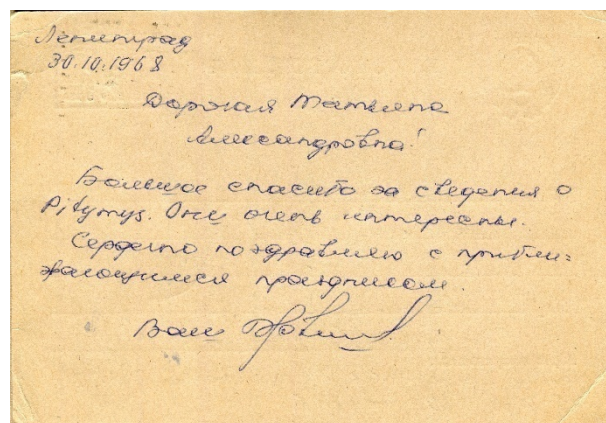 Ленинград
30.10.1968
Дорогая Татьяна
Александровна!
Большое спасибо за сведения о
Pitymys. Они очень интересны.
Сердечно поздравляю с прибли=
жающимся праздником.
Ваш